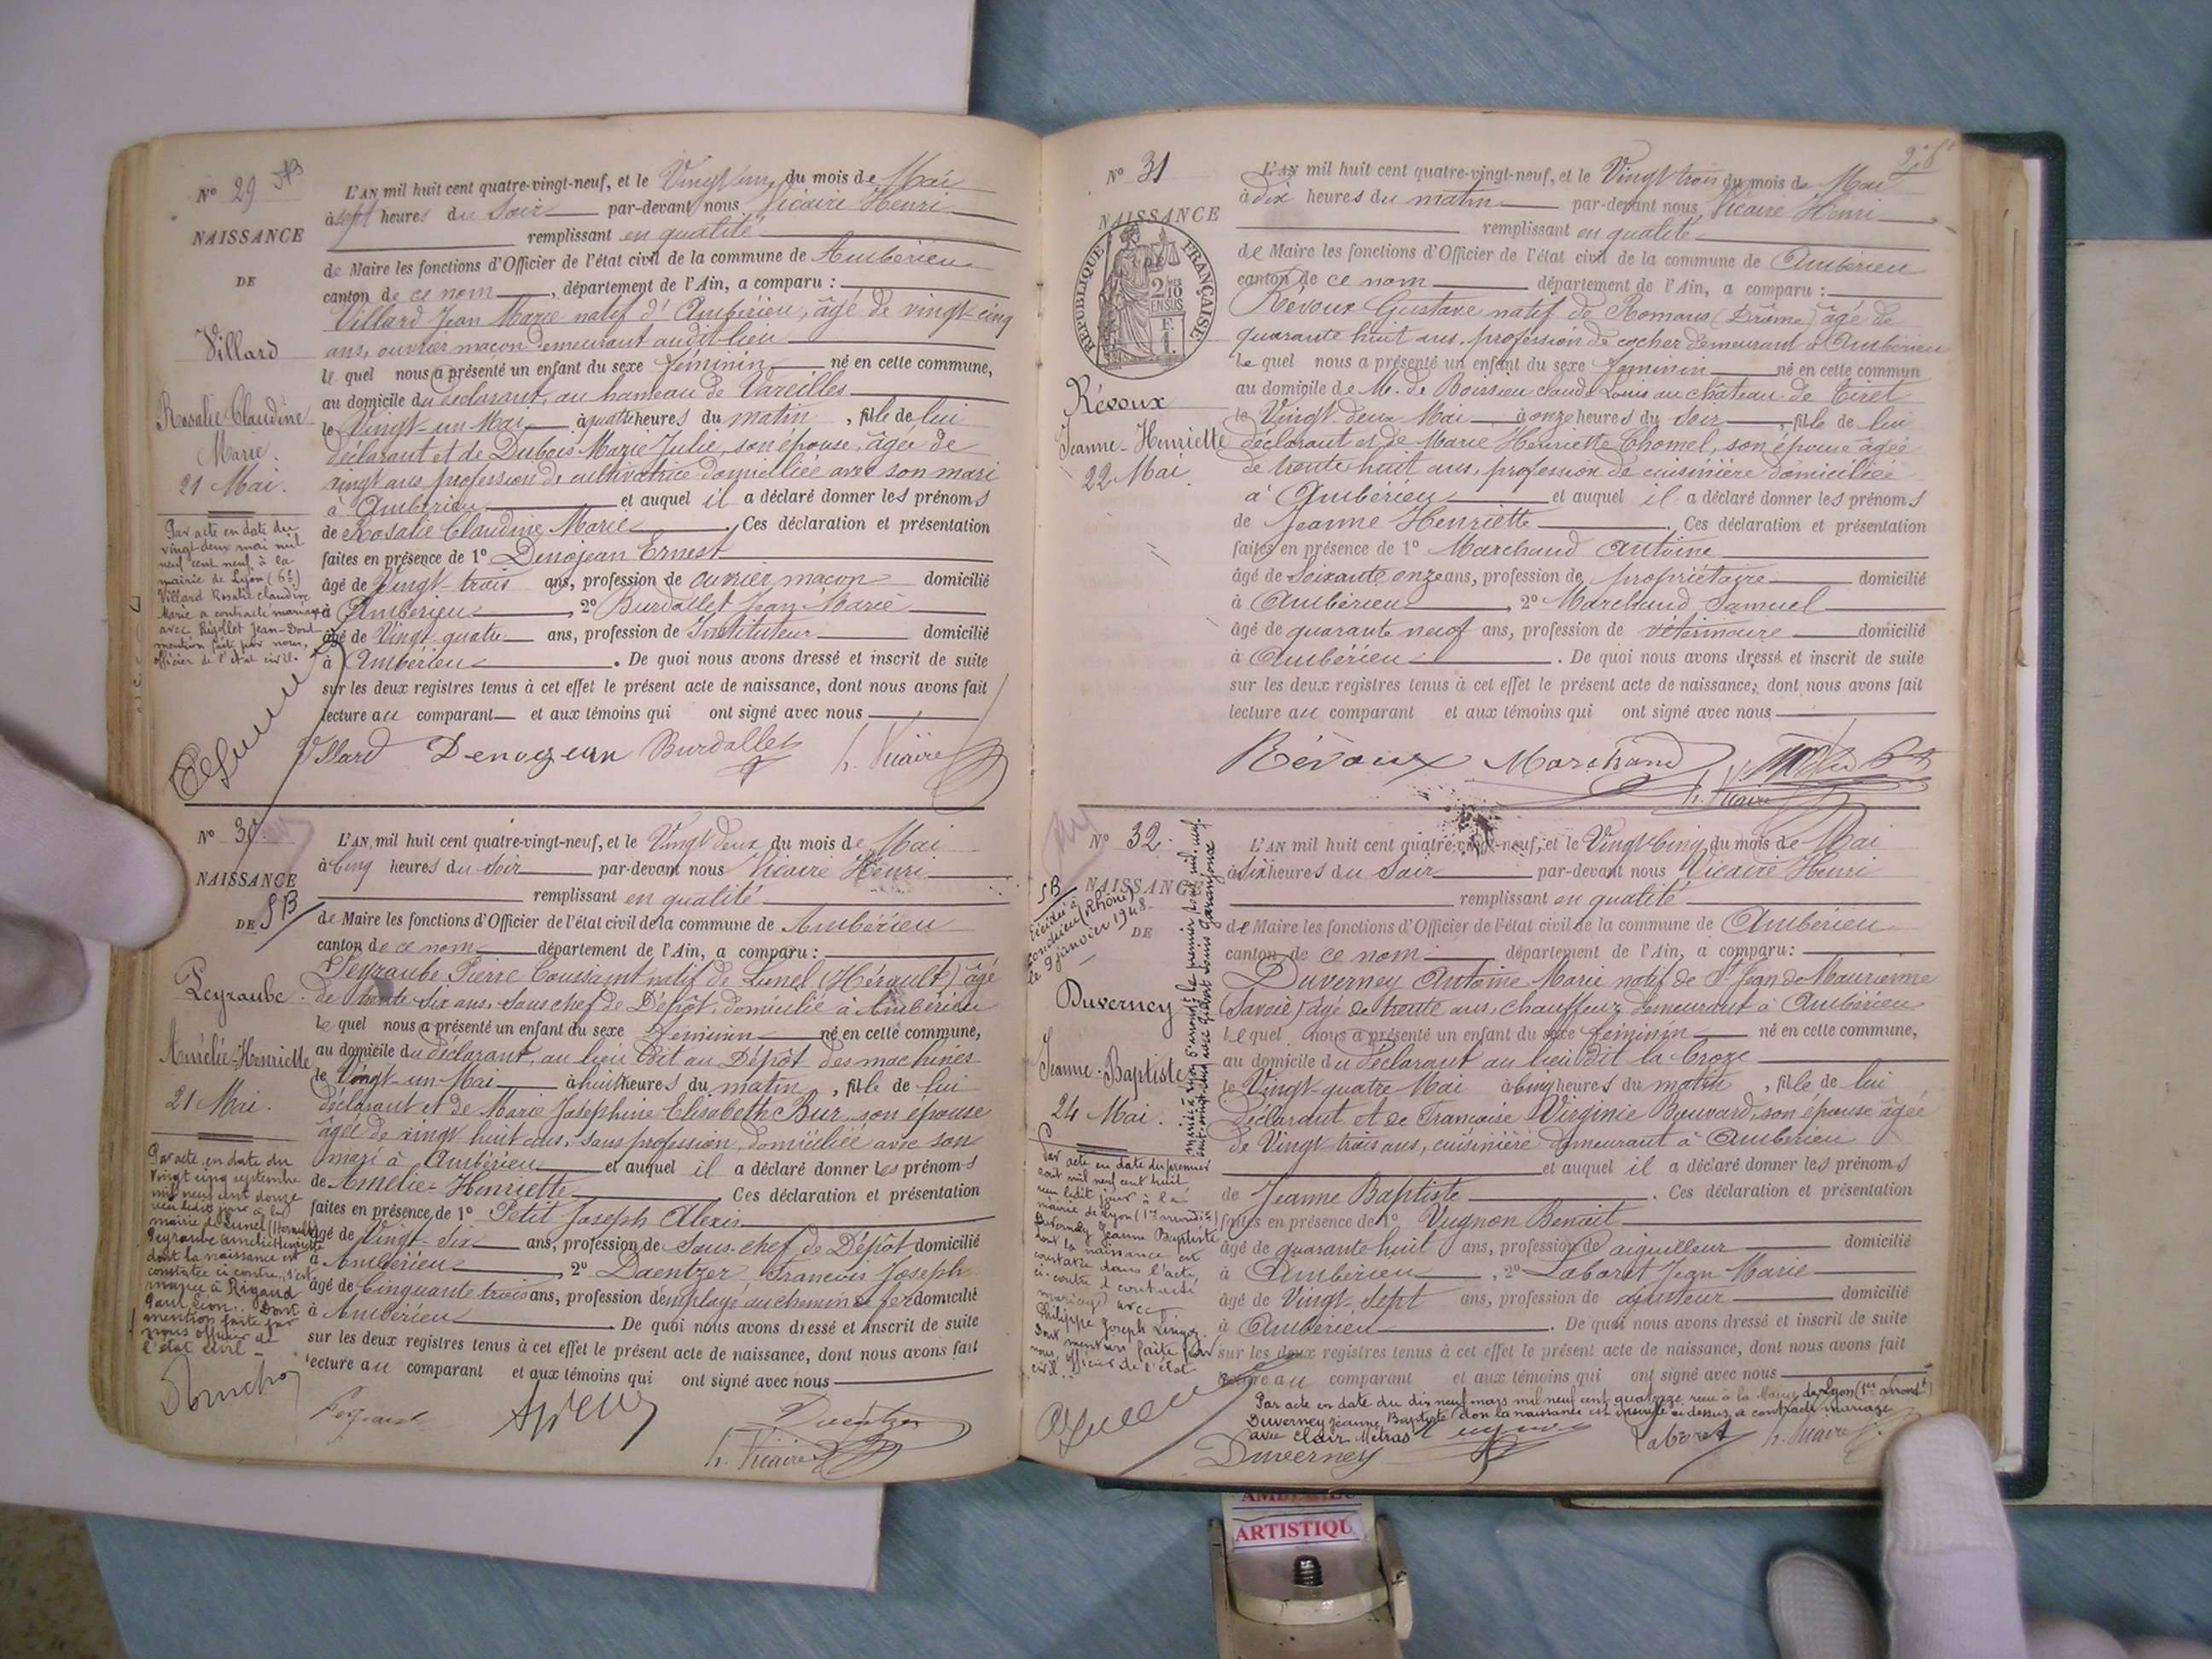 N° 29
NAISSANCE
DE
Villard
Rosalie Claudine
Marie.
21 Mai.
Par acte en date du
vingt-deux mai mil
neuf cent neuf à la
mairie de Lyon (6e)
Villard Rosalie Claudine
Marie a contracté mariage
avec Rigollet Jean - Dont
mention faite par nous,
officier de l'état civil.
L'AN mil huit cent quatre-vingt-neuf, et le Vingt un du mois de Mai
à sept heures du Soir par-devant nous Vicaire Henri
remplissant en qualité
de Maire les fonctions d'Officier de l'état civil de la commune de Ambérieu
canton de ce nom, département de l'Ain, a comparu :
Villard Jean Marie natif d'Ambérieu, âgé de vingt cinq
ans, ouvrier maçon demeurant audit lieu
le quel nous a présenté un enfant du sexe féminin né en cette commune,
au domicile du déclarant, au hameau de Vareilles
le Vingt-un Mai à quatre heures du matin, fille de lui
déclarant et de Dubois Marie Julie, son épouse, âgée de
vingt ans profession de cultivatrice domiciliée avec son mari
à Ambérieu et auquel il a déclaré donner les prénoms
de Rosalie Claudine Marie. Ces déclaration et présentation
faites en présence de 1° Denojean Ernest
âgé de Vingt-trois ans, profession de ouvrier maçon domicilié
à Ambérieu, 2° Burdallet Jean Marie
âgé de Vingt quatre ans, profession de Instituteur domicilié
à Ambérieu. De quoi nous avons dressé et inscrit de suite
sur les deux registres tenus à cet effet le présent acte de naissance, dont nous avons fait
lecture au comparant et aux témoins qui ont signé avec nous
Villard Denogean Burdallet h. Vicaire
N° 30
NAISSANCE
DE SB
Peyraube
Amélie-Henriette
21 Mai.
Par acte en date du
Vingt cinq septembre
mil neuf cent douze
reçu ledit jour à la
mairie de Lunel (Herault)
Peyraube Amélie Henriette
dont la naissance est
constatée ci contre, s'est
mariée à Rigaud
Paul Léon. Dont
mention faite par
nous officier de
l'état civil
L'AN mil huit cent quatre-vingt-neuf, et le Vingt deux du mois de Mai
à Cinq heures du soir par-devant nous Vicaire Henri
remplissant en qualité
de Maire les fonctions d'Officier de l'état civil de la commune de Ambérieu
canton de ce nom département de l'Ain, a comparu :
Peyraube Pierre Toussaint natif de Lunel (Hérault) âgé
de trente six ans, sous chef de Dépôt, domicilié à Ambérieu
le quel nous a présenté un enfant du sexe féminin né en cette commune,
au domicile du déclarant, au lieu dit au Dépôt des machines
le Vingt-un Mai à huit heures du matin, fille de lui
déclarant et de Marie Joséphine Elisabeth Bur son épouse
âgée de vingt huit ans, sans profession, domiciliée avec son
mari à Ambérieu et auquel il a déclaré donner les prénoms
de Amélie-Henriette Ces déclaration et présentation
faites en présence de 1° Petit Joseph Alexis
âgé de Vingt-Six ans, profession de Sous-chef de Dépôt domicilié
à Ambérieu, 2° Daentzer François Joseph
âgé de Cinquante trois ans, profession d'employé au chemin de fer domicilié
à Ambérieu. De quoi nous avons dressé et inscrit de suite
sur les deux registres tenus à cet effet le présent acte de naissance, dont nous avons fait
lecture au comparant et aux témoins qui ont signé avec nous
Daentzer
h. Vicaire
N° 31
NAISSANCE
RÉPUBLIQUE FRANÇAISE
2/10
EN SUS
1 F.
Révoux
Jeanne-Henriette
22 Mai.
L'AN mil huit cent quatre-vingt-neuf, et le Vingt trois du mois de Mai
à dix heures du matin par-devant nous Vicaire Henri
remplissant en qualité
de Maire les fonctions d'Officier de l'état civil de la commune de Ambérieu
canton de ce nom département de l'Ain, a comparu :
Révoux Gustave natif de Romans (Drôme) âgé de
quarante huit ans, profession de cocher demeurant à Ambérieu
le quel nous a présenté un enfant du sexe féminin né en cette commun
au domicile de M. de Boissieu Claude Louis au château de Tiret
le Vingt-deux Mai à onze heures du soir, fille de lui
déclarant et de Marie Henriette Chomel, son épouse âgée
de trente huit ans, profession de cuisinière domiciliée
à Ambérieu et auquel il a déclaré donner les prénoms
de Jeanne Henriette. Ces déclaration et présentation
faites en présence de 1° Marchand Antoine
âgé de Soixante onze ans, profession de propriétaire domicilié
à Ambérieu, 2° Marchand Samuel
âgé de quarante neuf ans, profession de vétérinaire domicilié
à Ambérieu. De quoi nous avons dressé et inscrit de suite
sur les deux registres tenus à cet effet le présent acte de naissance, dont nous avons fait
lecture au comparant et aux témoins qui ont signé avec nous
Révoux Marchand
h. Vicaire
N° 32
NAISSANCE
SB
Décédée à
Condrieu (Rhône)
le 9 janvier 1948
DE
Duverney
Jeanne-Baptiste
24 Mai.
Par acte en date du premier
août mil neuf cent huit
reçu ledit jour à la
mairie de Lyon (1er arrondt)
Duverney Jeanne Baptiste
dont la naissance est
constatée dans l'acte
ci-contre a contracté
mariage avec
Philippe Joseph
Dont mention faite par
nous, officier de l'état
civil.
L'AN mil huit cent quatre-vingt-neuf, et le Vingt Cinq du mois de Mai
à Six heures du Soir par-devant nous Vicaire Henri
remplissant en qualité
de Maire les fonctions d'Officier de l'état civil de la commune de Ambérieu
canton de ce nom département de l'Ain, a comparu :
Duverney Antoine Marie natif de St Jean de Maurienne
(Savoie) âgé de trente ans, chauffeur demeurant à Ambérieu
le quel nous a présenté un enfant du sexe féminin né en cette commune,
au domicile du déclarant au lieu dit la Croze
le Vingt-quatre Mai à Cinq heures du matin, fille de lui
déclarant et de Françoise Virginie Bouvard, son épouse âgée
de Vingt trois ans, cuisinière demeurant à Ambérieu
et auquel il a déclaré donner les prénoms
de Jeanne Baptiste. Ces déclaration et présentation
faites en présence de 1° Vugnon Benoit
âgé de quarante huit ans, profession de aiguilleur domicilié
à Ambérieu, 2° Laboret Jean Marie
âgé de Vingt-Sept ans, profession de ajusteur domicilié
à Ambérieu. De quoi nous avons dressé et inscrit de suite
sur les deux registres tenus à cet effet le présent acte de naissance, dont nous avons fait
lecture au comparant et aux témoins qui ont signé avec nous
Par acte en date du dix neuf mars mil neuf cent quatorze reçu à la Mairie de Lyon (1er arrondt)
Duverney Jeanne Baptiste don la naissance est inscrite ci dessus a contracté mariage
avec Clair Métras
Duverney Laboret h. Vicaire
ARTISTIQU